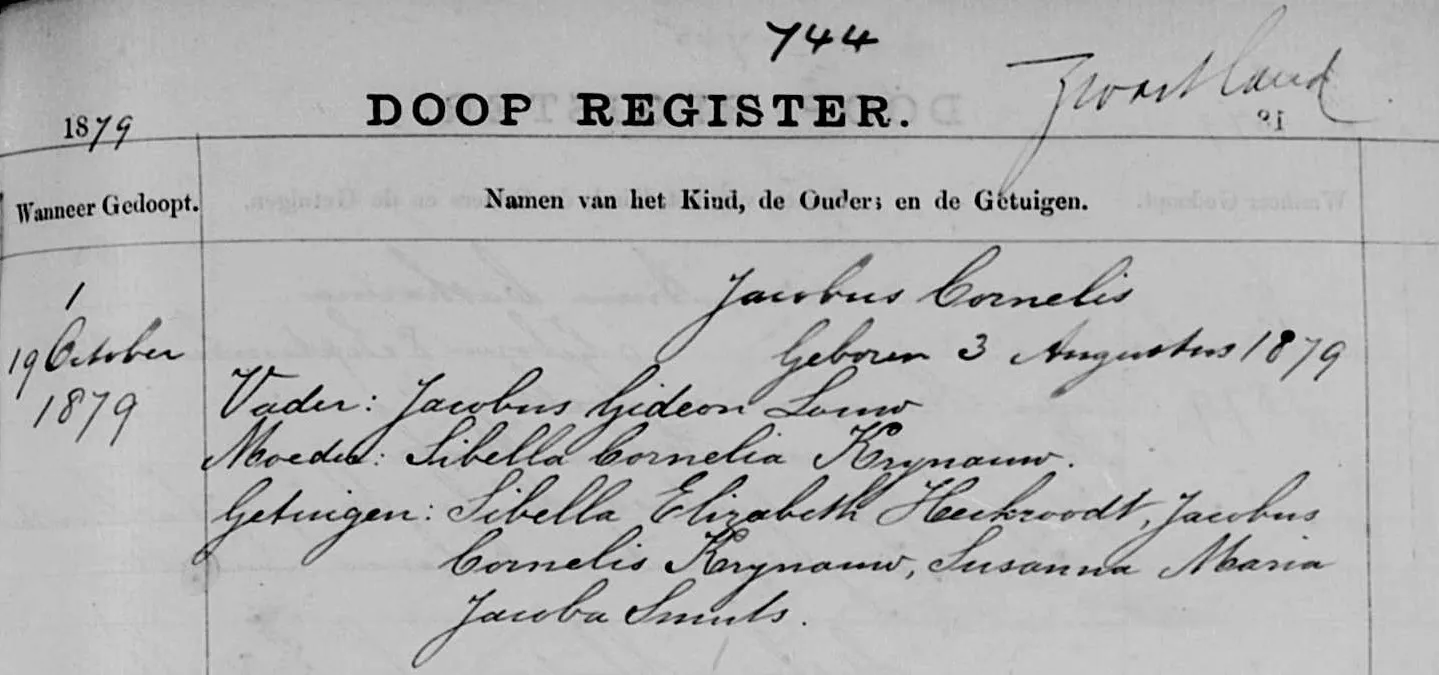 744
Zwartland
1879
DOOP REGISTER.
Wanneer Gedoopt.
Namen van het Kind, de Ouders en de Getuigen.
1
Jacobus Cornelis
19 October
Geboren 3 Augustus 1879
1879
Vader: Jacobus Gideon Louw
Moeder: Sibella Cornelia Krynauw.
Getuigen: Sibella Elizabeth Heckroodt, Jacobus
Cornelis Krynauw, Susanna Maria
Jacoba Smuts.